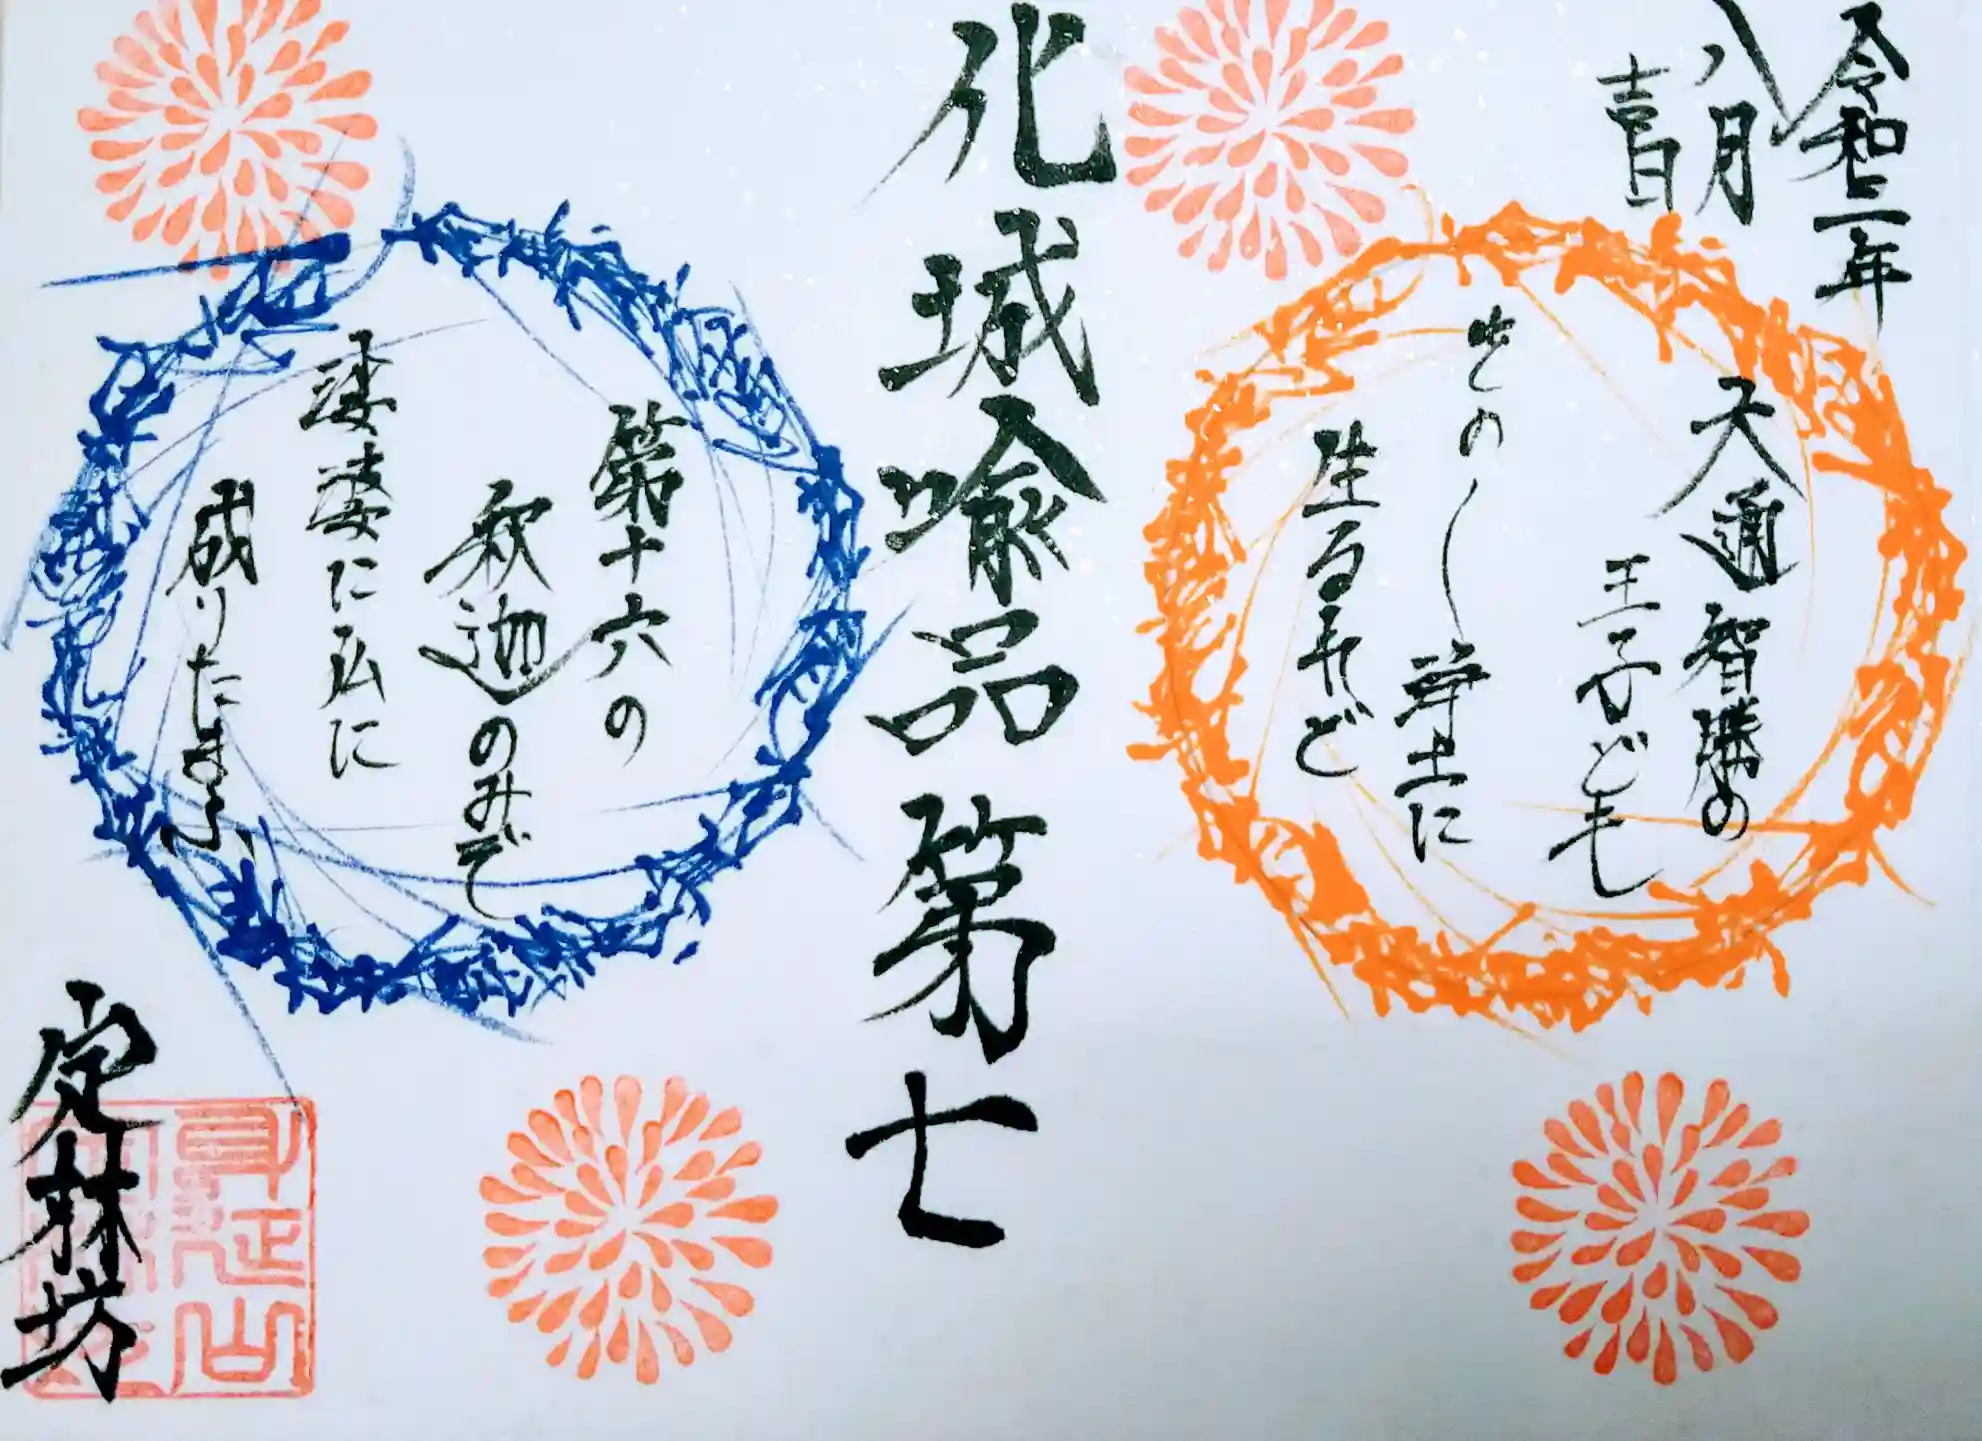 令和二年
八月
吉日
天通智勝の
王子ども
生るれど
化城喩品第七
第十六の
釈迦のみぞ
娑婆に仏に
成りたまふ
定林坊
身延山